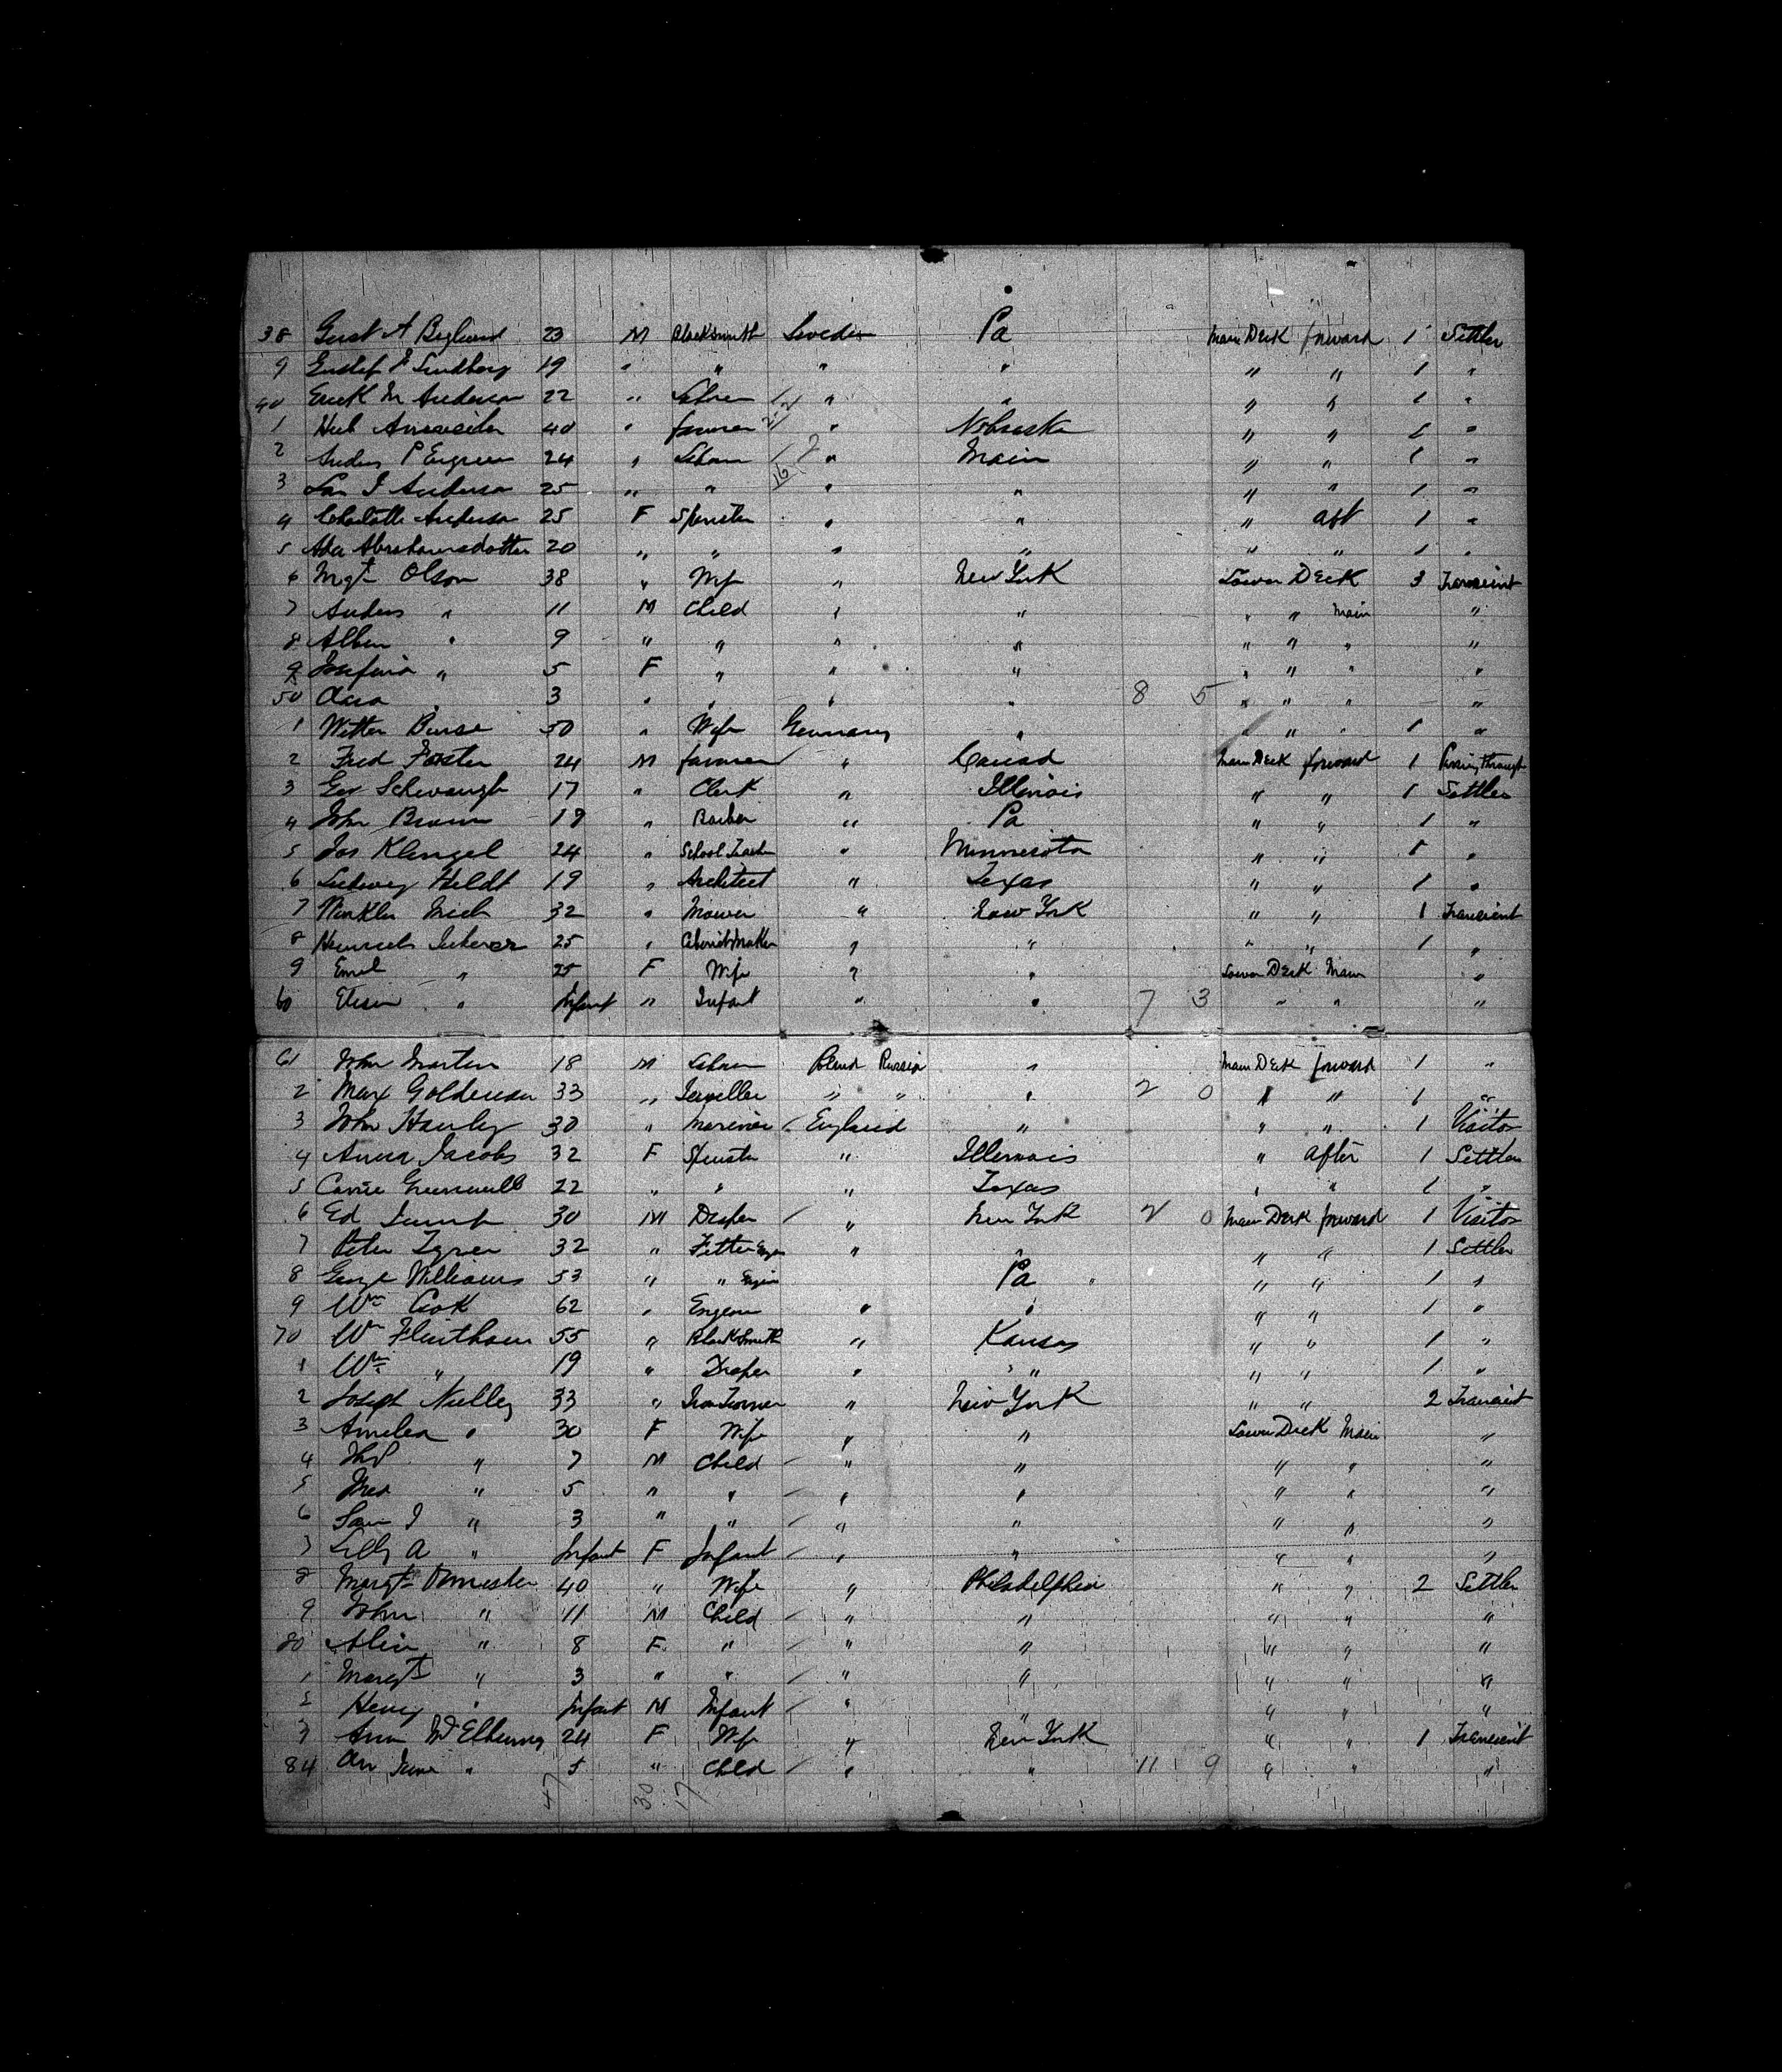 38 Gust A Beglund 23 M Blacksmith Sweden Pa Main Deck forward 1 Settler
9 Gustaf E Lindberg 19 " " " " " " 1 "
40 Erick M Anderson 22 " Labrer " " " " 1 "
1 40 " farmer " Nobraska " " 1 "
2 Anders P 24 " Labrer " Main " " 1 "
3 Lars J Anderson 25 " " " " " " 1 "
4 Charlotte Anderson 25 F Spinster " " " aft 1 "
5 Ada Abrahamsdotter 20 " " " " " " 1 "
6 Mgt Olson 38 " Wife " New York Lower Deck 3 Transient
7 Anders " 11 M Child " " " " Main "
8 Alben " 9 " " " " " " " "
9 Josefina " 5 F " " " " " " "
50 Clara " 3 " " " " 8 5 " " " "
1 50 " Wife Germany " " " " 1 "
2 Fred Foster 24 M farmer " Canad Main Deck forward 1 Passing through
3 Geo 17 " Clerk " Illinois " " 1 Settler
4 John Brown 19 " Barber " Pa " " 1 "
5 Jos Klengel 24 " School Teacher " Minnesota " " 1 "
6 Ludwig Heldt 19 " Architect " Texas " " 1 "
7 Winkler 32 " " New York " " 1 Transient
8 Heinrich 25 " Cabinet Maker " " " " 1 "
9 Emil " 25 F Wife " " Lower Deck Main "
60 " Infant " Infant " " 7 3 " " "
61 John Martin 18 M Labrer Poland Russia " Main Deck forward 1 "
2 Max Goldman 33 " " " " 2 0 " " 1 "
3 John Hanley 30 " Mariner England " " " 1 Visitor
4 Anna Jacobs 32 F Spinster " Illernois " After 1 Settler
5 Carrie 22 " " " Texas " " 1 "
6 Ed 30 M Draper " New York 2 0 Main Deck forward 1 Visitor
7 Peter 32 " Fitter " " " " 1 Settler
8 George Williams 53 " " Pa " " " 1 "
9 Wm Cook 62 " " " " " 1 "
70 Wm Flintham 55 " BlackSmith " Kansas " " 1 "
1 Wm " 19 " Draper " " " " 1 "
2 Joseph Nulley 33 " Iron Turner " New York " " 2 Transient
3 Amelea " 30 F Wife " " Lower Deck Main "
4 " 7 M Child " " " " "
5 " 5 " " " " " " "
6 Sam J " 3 " " " " " " "
7 Lilly A " Infant F Infant " " " " "
8 Margt 40 " Wife " Philadelphia " " 2 Settler
9 John " 11 M Child " " " " "
80 Alice " 8 F " " " " " "
1 Margt " 3 " " " " " " "
2 Henry " Infant M Infant " " " " "
3 Ann McElhenny 24 F Wife " New York " " 1 Transient
84 Ann Jane " 5 " Child " " 11 9 " " "
47 30 17